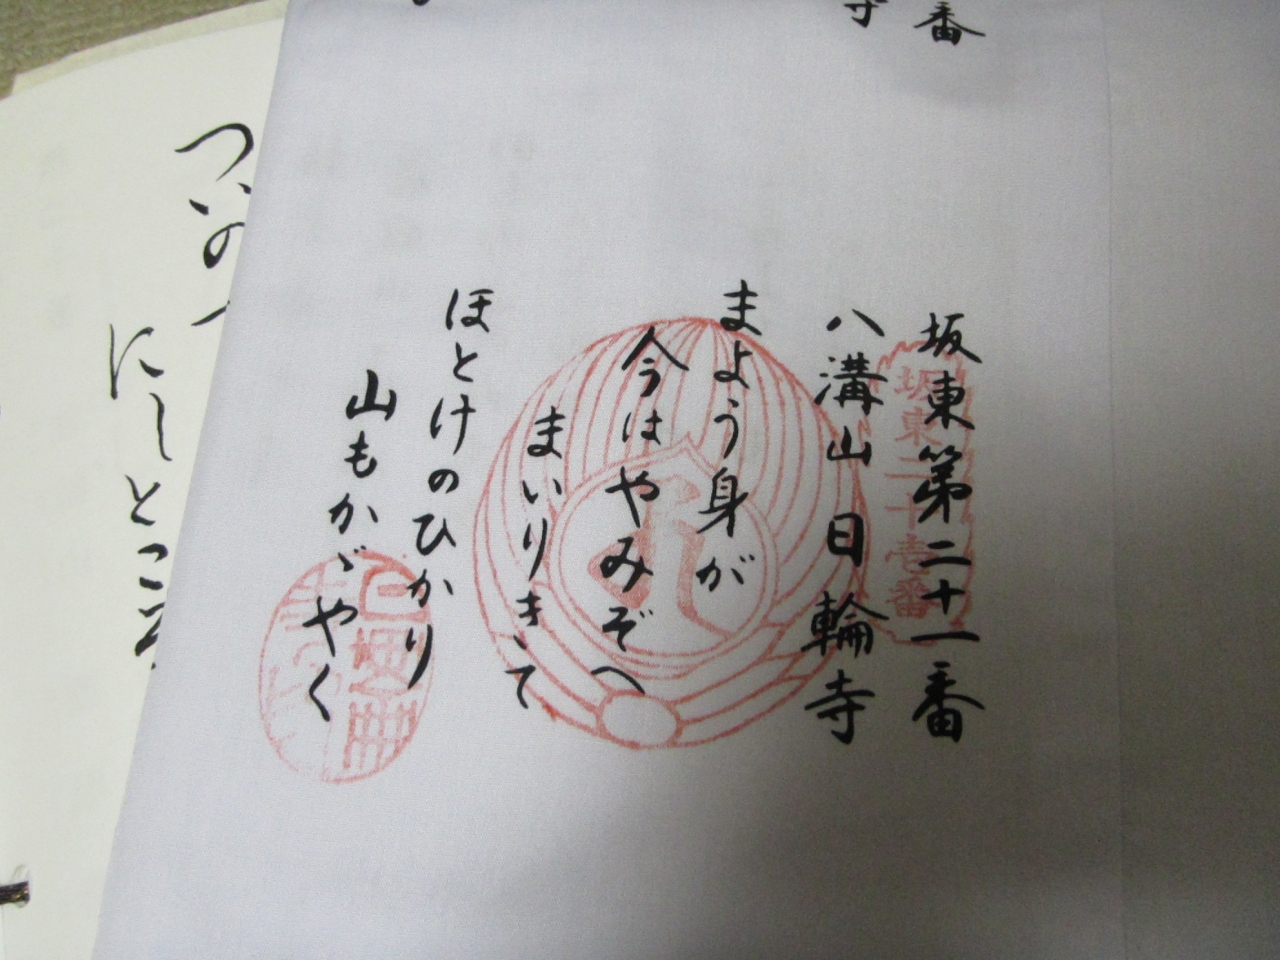 番
寺
坂東第二十一番
坂東二十壱番
八溝山日輪寺
まよう身が
今はやみぞへ
まいりきて
ほとけのひかり
山もかゞやく
ついの
にしとこ